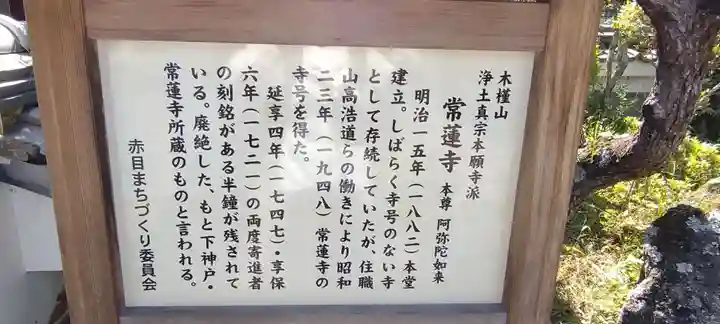 木槿山
浄土真宗本願寺派
常蓮寺 本尊 阿弥陀如来
明治一五年(一八八二)本堂
建立。しばらく寺号のない寺
として存続していたが、住職
山高浩道らの働きにより昭和
二三年(一九四八)常蓮寺の
寺号を得た。
延享四年(一七四七)・享保
六年(一七二一)の両度寄進者
の刻銘がある半鐘が残されて
いる。廃絶した、もと下神戸・
常蓮寺所蔵のものと言われる。
赤目まちづくり委員会